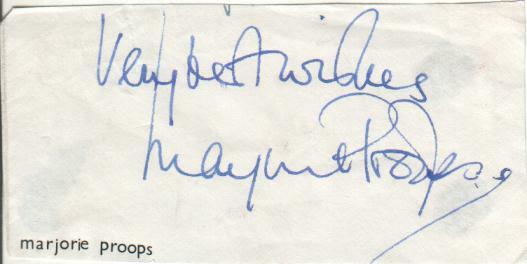 Very best wishes
Marjorie Proops
marjorie proops